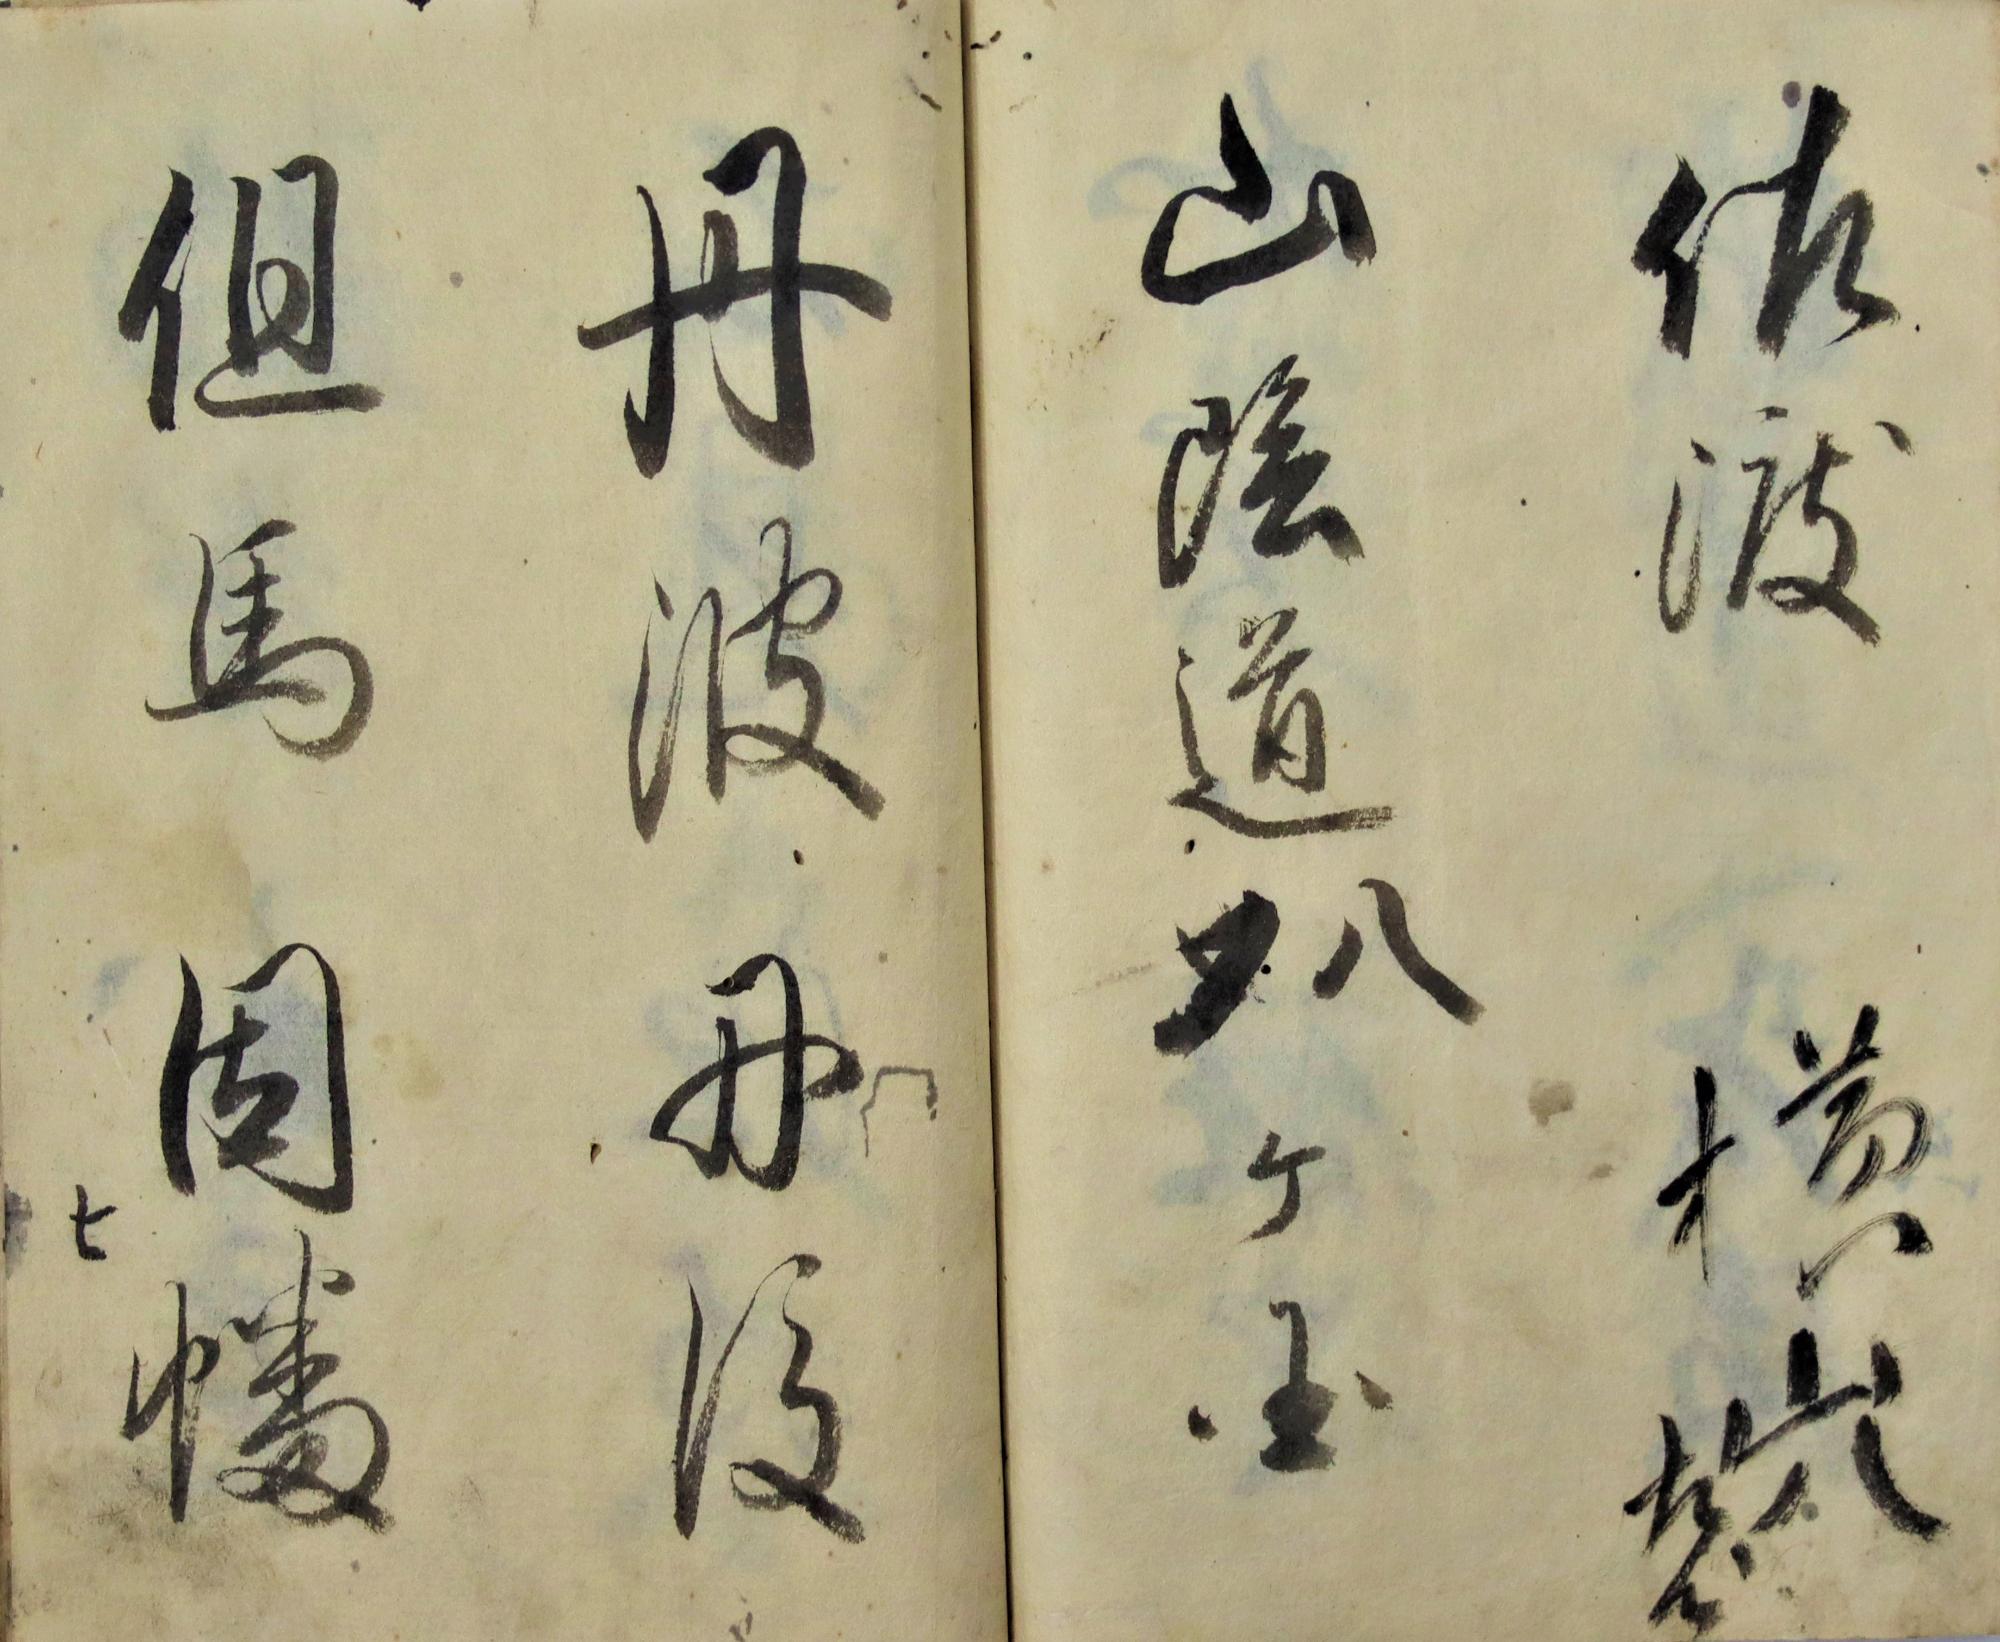 佐渡 横
山陰道八ケ国
丹波 丹後
但馬 因幡
七